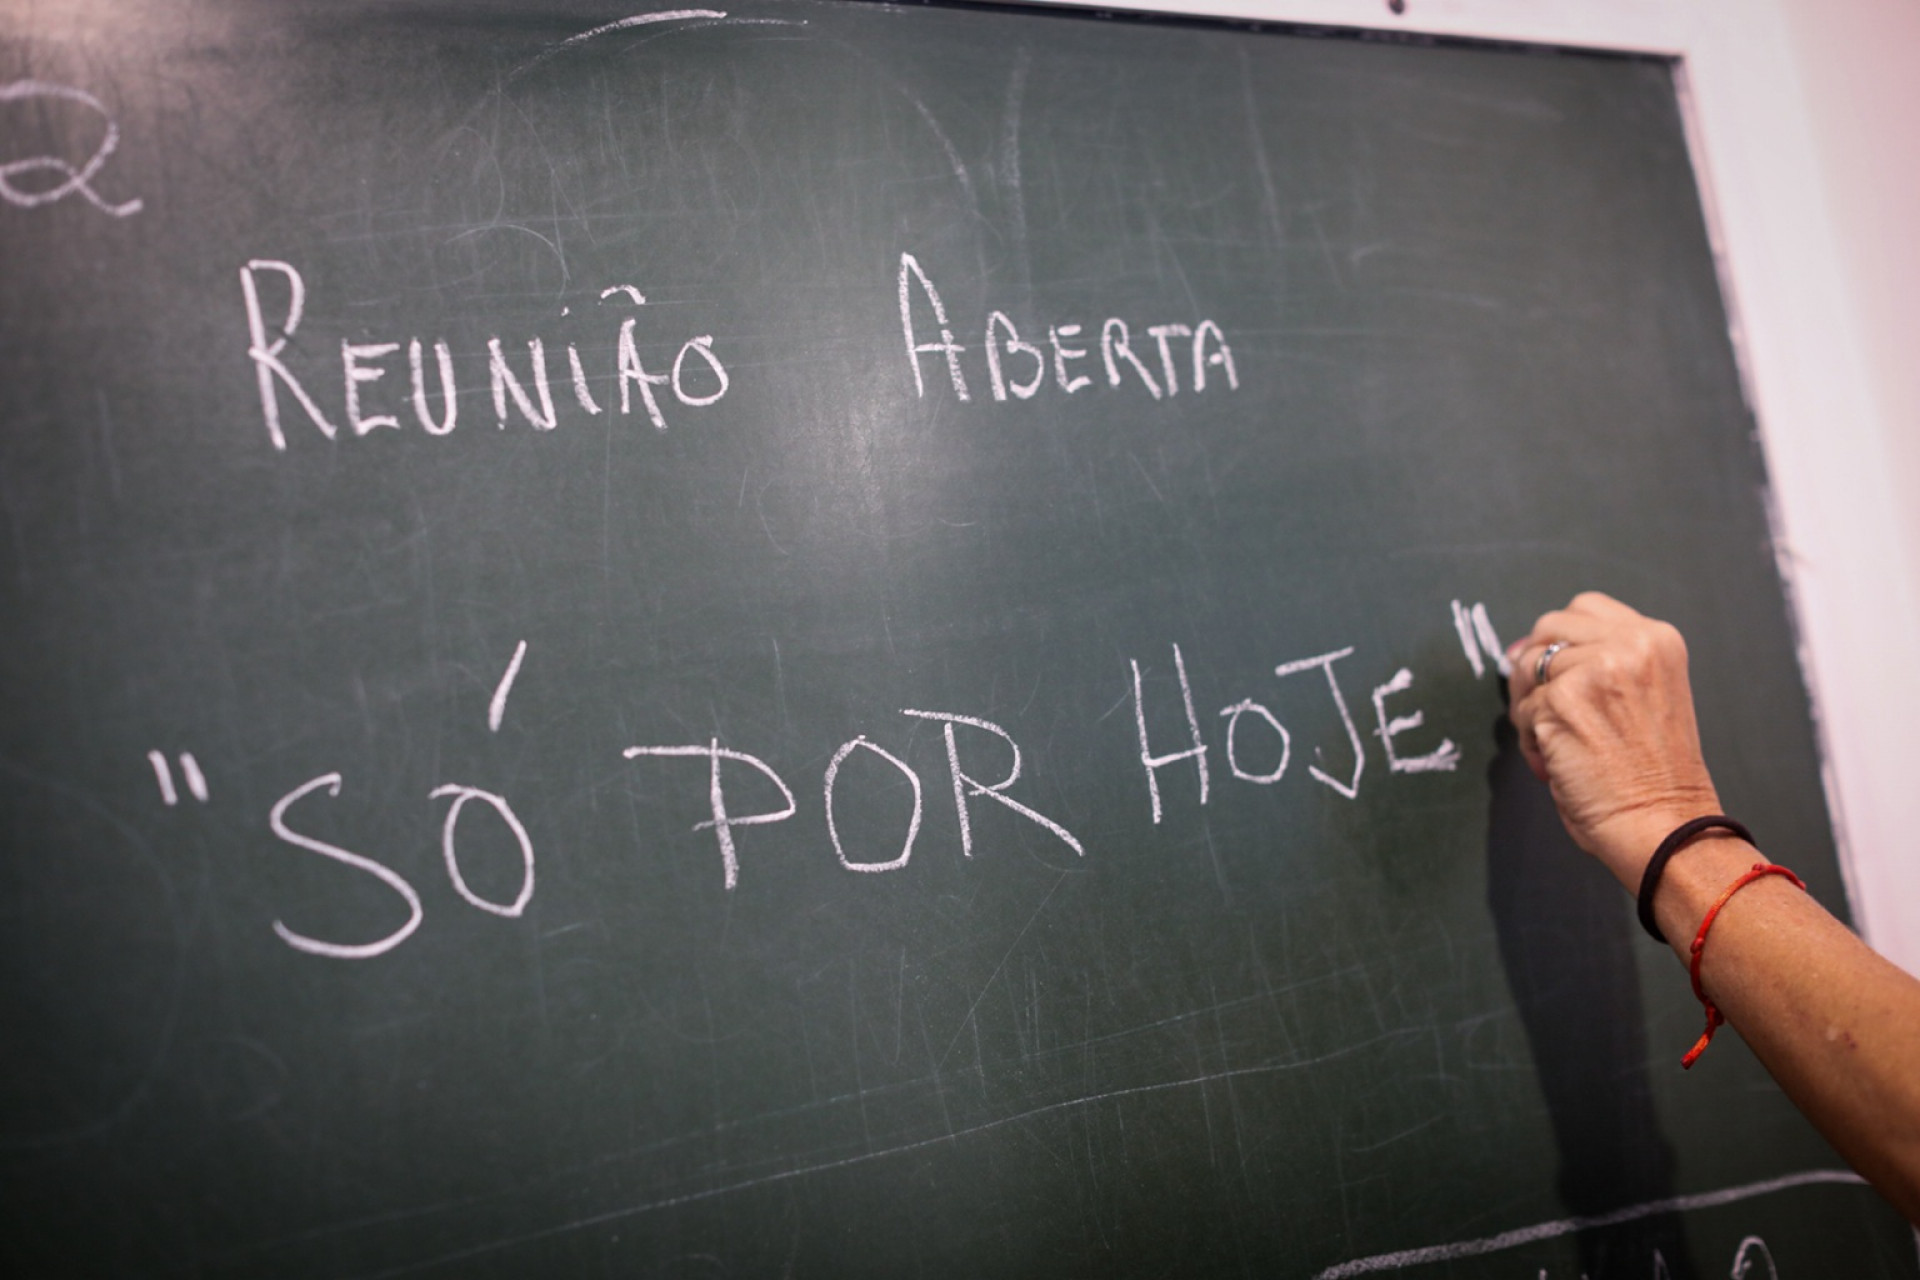 2
REUNIÃO ABERTA
"SÓ POR HOJE"